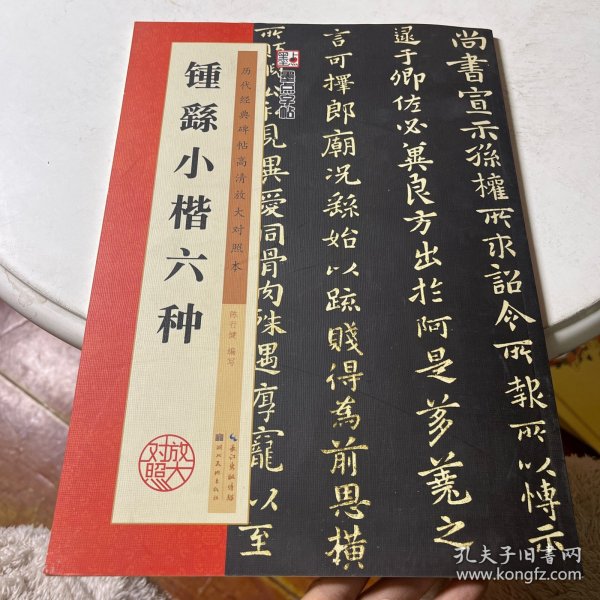 锺繇小楷六种
历代经典碑帖高清放大对照本
陈行健 编写
放大
对照
长江出版传媒
湖北美术出版社
墨点字帖
尚書宣示孫權所求詔令所報所以慱示
逮于卿佐必兾良方出於阿是芻蕘之
言可擇郎廟况繇始以疏賤得為前恩橫
所 見異愛同骨肉殊遇厚寵以至
孔夫子旧书网
www.kongfz.com